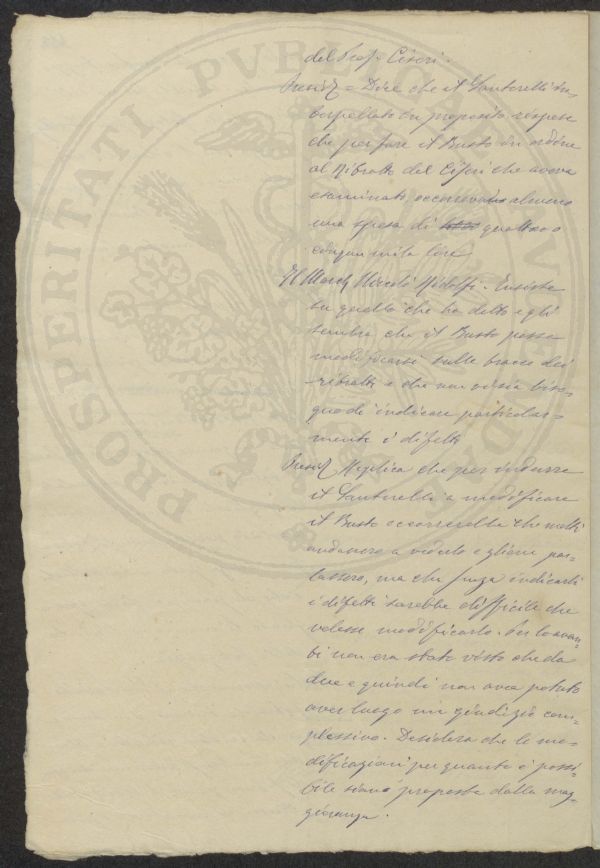 del Prof. Ciseri.
Presid = Dice che il Santarelli in-
terpellato in proposito, rispose
che per fare il Busto in ordine
al Ritratto del Ciseri che aveva
esaminato, occorrevano almeno
una spesa di quattro o
cinque mila lire
Il March Niccolò Ridolfi. Insiste
su quello che ha detto e gli
sembra che il Busto possa
modificarsi sulle tracce dei
ritratti e che non vi sia biso-
gno di indicare particolar-
mente i difetti
Presid Replica che per indurre
il Santarelli a modificare
il Busto occorrerebbe che molti
andassero a vederlo e gliene par-
lassero, ma che senza indicarli
i difetti sarebbe difficile che
volesse modificarlo. Per lo avan-
ti non era stato visto che da
due e quindi non avea potuto
aver luogo un giudizio com-
plessivo. Desidera che le mo-
dificazioni per quanto è possi-
bile siano proposte dalla mag-
gioranza.
PROSPERITATI PVBLICAE